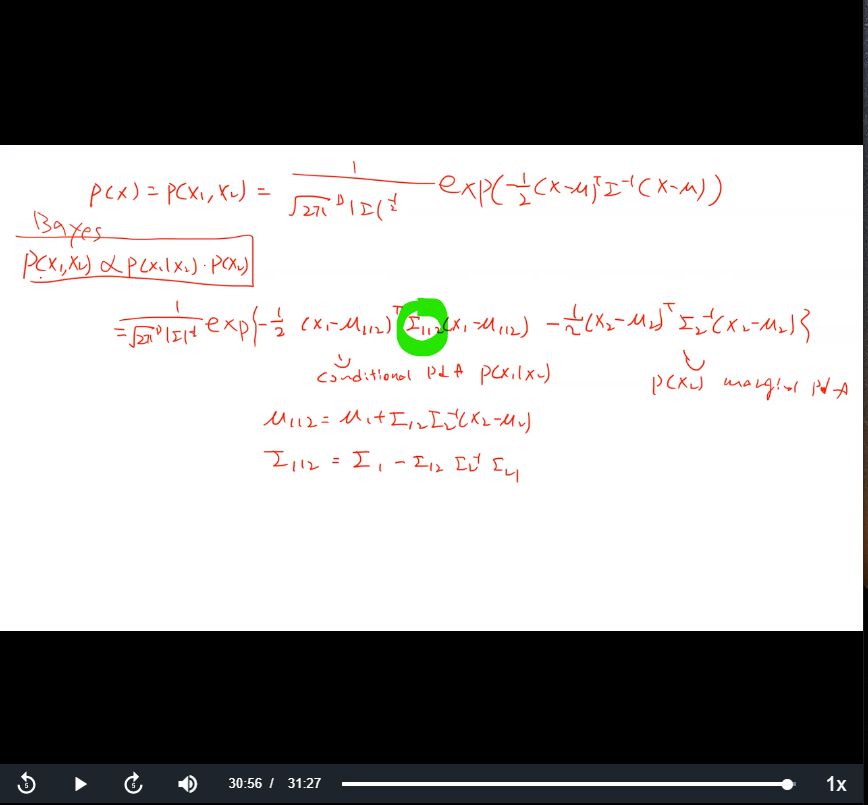 P(x) = P(x₁, x₂) = 1 / √2π^D |Σ|^½ exp(-½(x-μ)ᵀΣ⁻¹(x-μ))
Bayes
P(x₁,x₂) ∝ P(x₁|x₂)·P(x₂)
= 1 / √2π^D |Σ|^½ exp{-½ (x₁-μ₁|₂)ᵀ Σ₁|₂(x₁-μ₁|₂) -½(x₂-μ₂)ᵀ Σ₂⁻¹(x₂-μ₂)}
conditional pdf P(x₁|x₂)
P(x₂) marginal pdf
μ₁|₂ = μ₁+Σ₁₂Σ₂⁻¹(x₂-μ₂)
Σ₁|₂ = Σ₁ - Σ₁₂ Σ₂⁻¹ Σ₂₁
5
5
30:56 / 31:27
1x